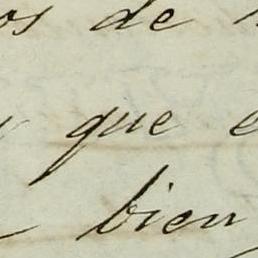 os de
que e
bien